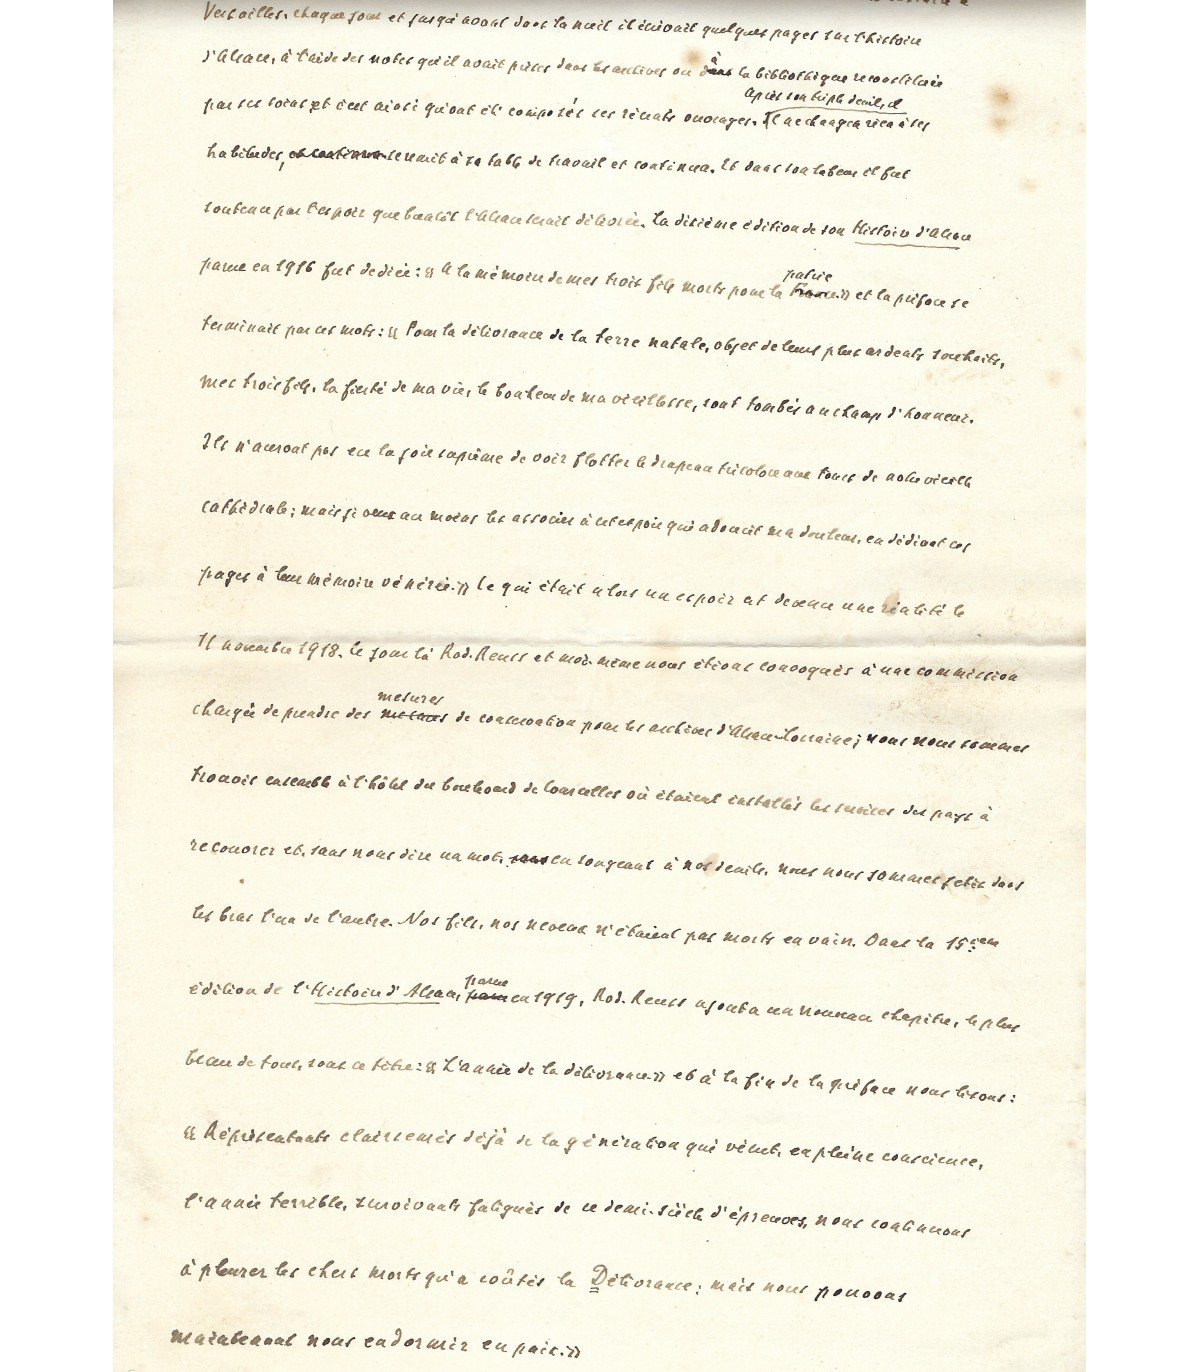 Versailles. Chaque jour et jusqu'avant dans la nuit il écrivait quelques pages sur l'histoire
d'Alsace, à l'aide des notes qu'il avait prises dans les archives ou dans à la bibliothèque reconstituée
Après son triple deuil, il
par ses soins et c'est ainsi qu'ont été composés ses récents ouvrages. Il ne changea rien à ses
habitudes, et continua se remit à sa table de travail et continua. Et dans son labeur il fut
soutenu par l'espoir que bientôt l'Alsace serait délivrée. La dixième édition de son Histoire d'Alsace
patrie
parue en 1916 fut dédiée : « A la mémoire de mes trois fils morts pour la France » et la préface se
terminait par ces mots : « Pour la délivrance de la terre natale, objet de leurs plus ardents souhaits,
mes trois fils, la fierté de ma vie, le bonheur de ma vieillesse, sont tombés au champ d'honneur.
Ils n'auront pas eu la joie suprême de voir flotter le drapeau tricolore aux tours de notre vieille
cathédrale ; mais je veux au moins les associer à cet espoir qui adoucit ma douleur, en dédiant ces
pages à leur mémoire vénérée. » Ce qui était alors un espoir est devenu une réalité le
11 novembre 1918. Ce jour là Rod. Reuss et moi-même nous étions convoqués à une commission
mesures
chargée de prendre des mesures de conservation pour les archives d'Alsace-Lorraine ; nous nous sommes
trouvés ensemble à l'hôtel du boulevard de Courcelles où étaient installés les services des pays à
recouvrer et, sans nous dire un mot, sans en songeant à nos deuils, nous nous sommes jetés dans
les bras l'un de l'autre. Nos fils, nos neveux n'étaient pas morts en vain. Dans la 15ème
parue
édition de l'Histoire d'Alsace, parue en 1919, Rod. Reuss ajouta un nouveau chapitre, le plus
beau de tous, sous ce titre : « L'année de la délivrance » et à la fin de la préface nous lisons :
« Représentants clairsemés déjà de la génération qui vécut, en pleine conscience,
l'année terrible, survivants fatigués de ce demi-siècle d'épreuves, nous continuons
à pleurer les chers morts qu'a coûtés la Délivrance ; mais nous pouvons
maintenant nous endormir en paix. »